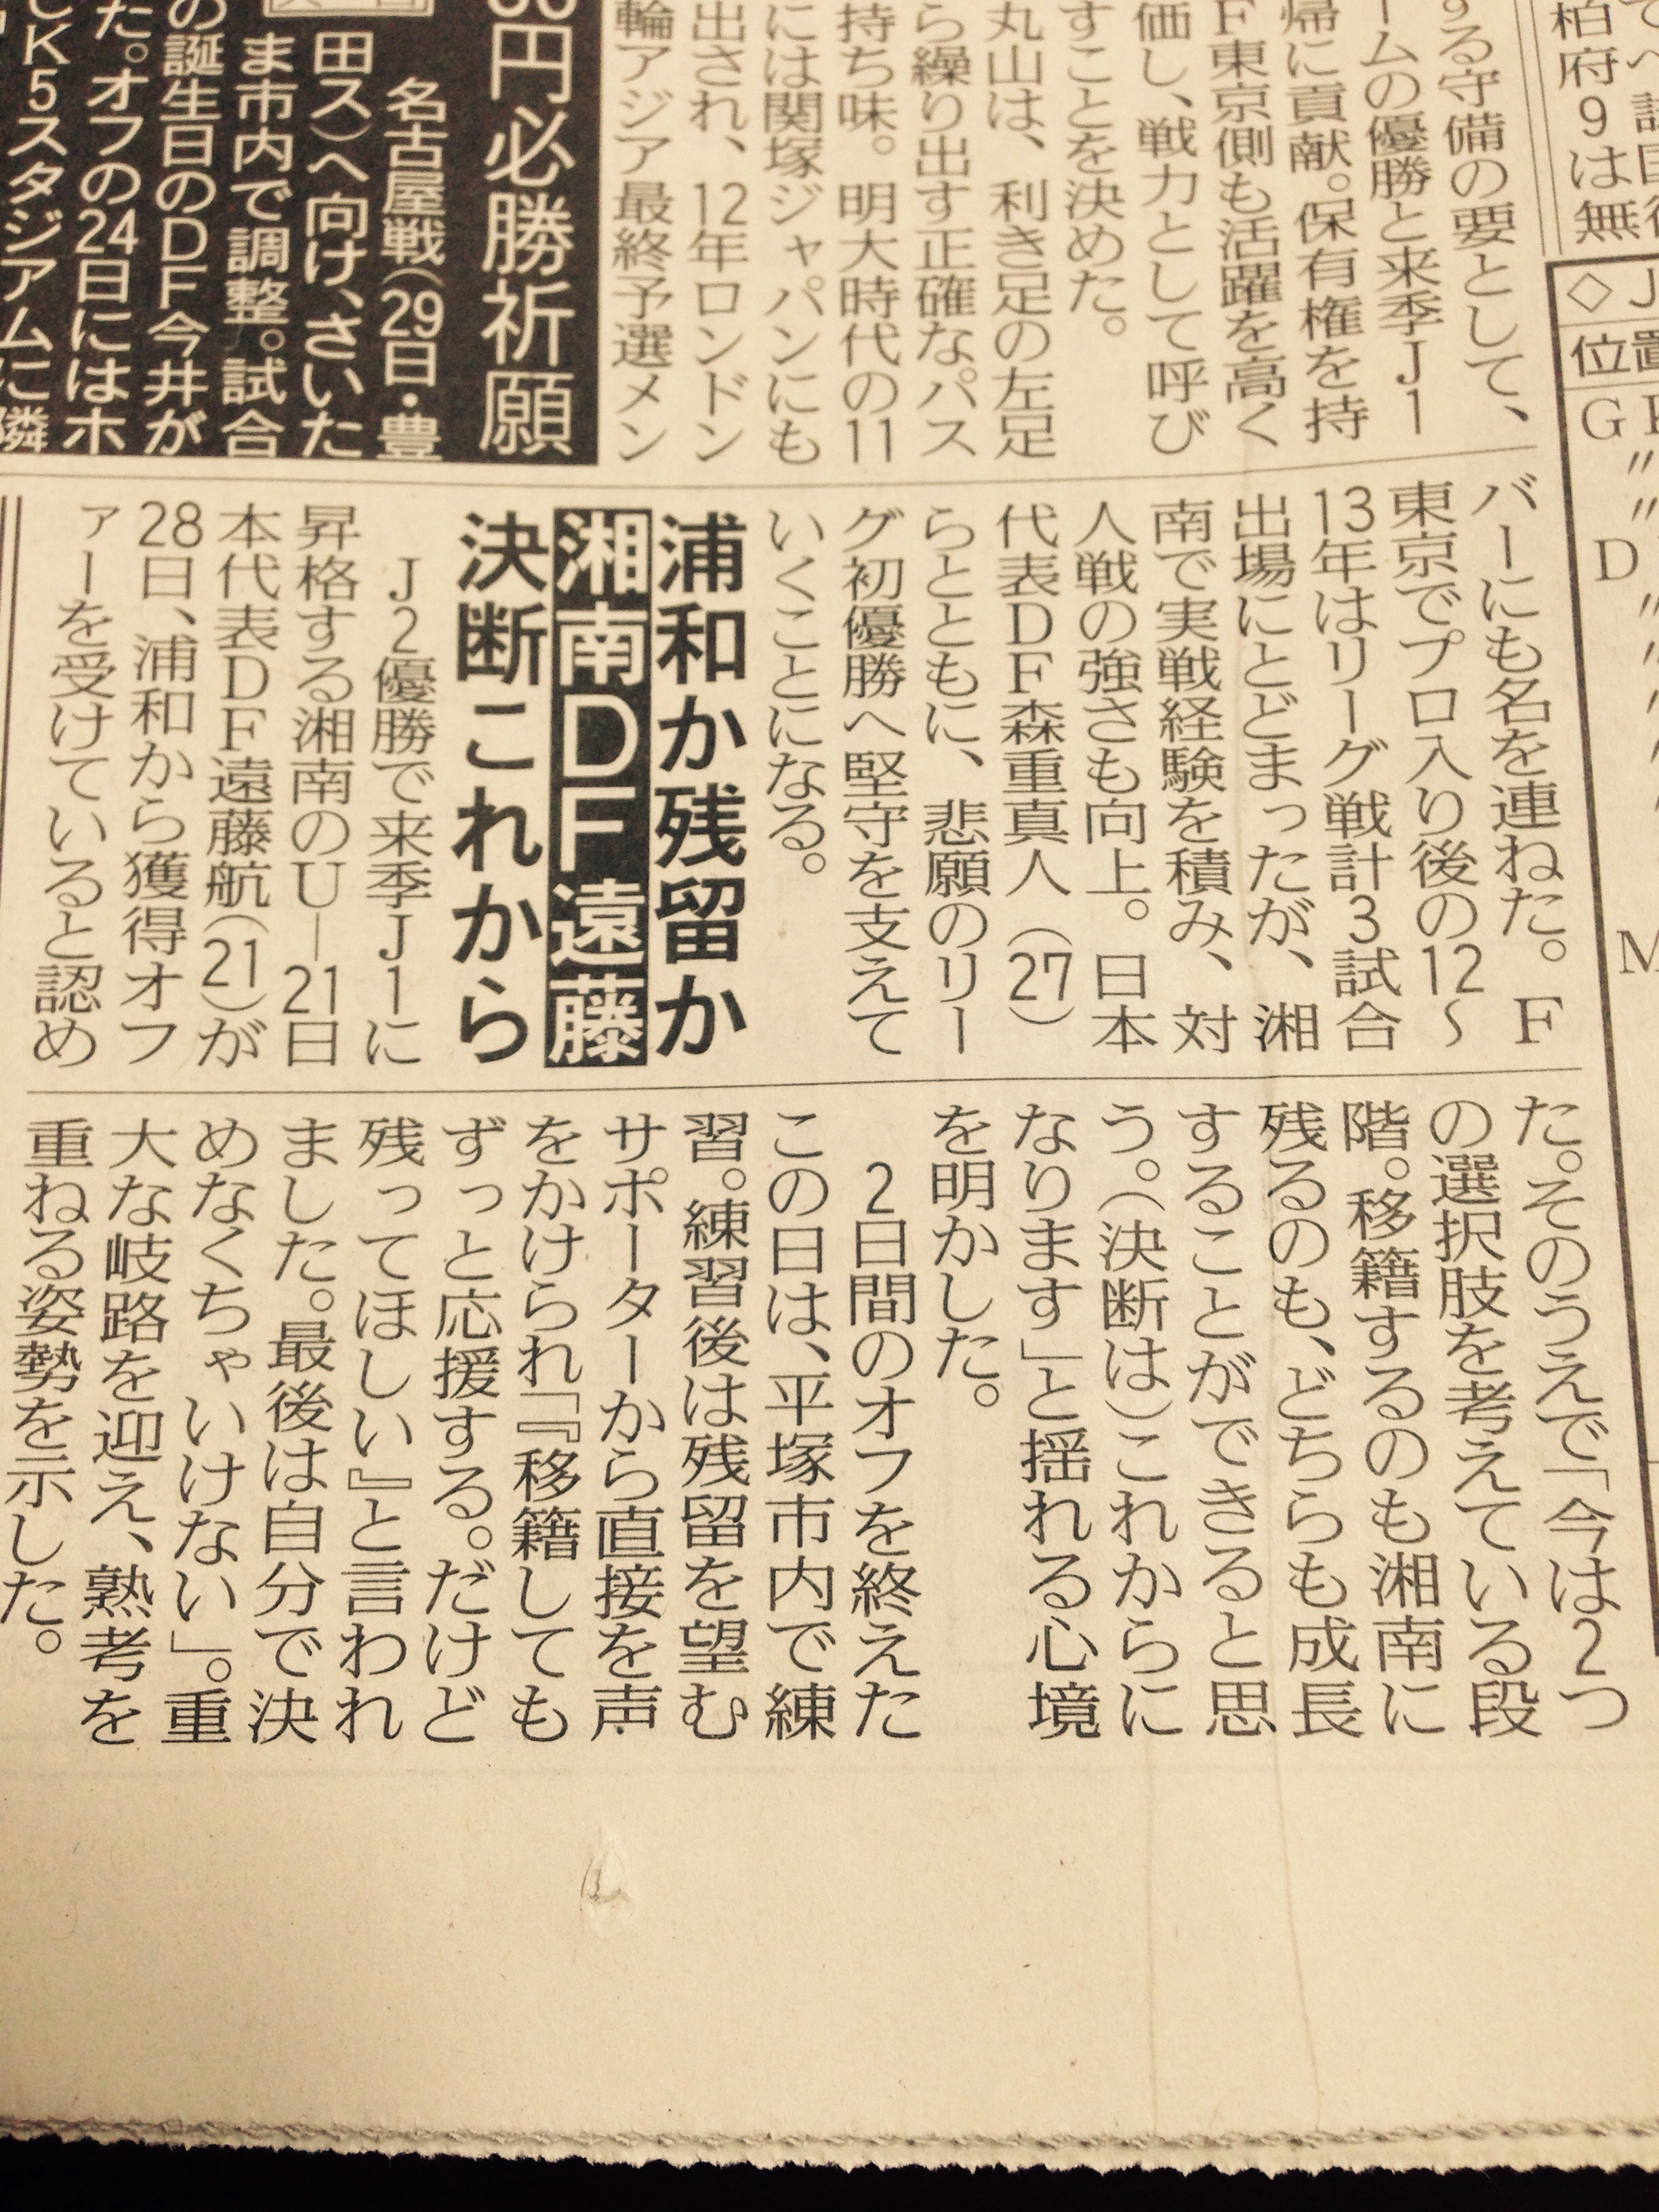 柏府9は無
◇J
位置
GK
〃
〃
D
〃
〃
〃
M
する守備の要として、
ームの優勝と来季J1
帰に貢献。保有権を持
F東京側も活躍を高く
価し、戦力として呼び
すことを決めた。
丸山は、利き足の左足
ら繰り出す正確なパス
持ち味。明大時代の11
には関塚ジャパンにも
出され、12年ロンドン
輪アジア最終予選メン
バーにも名を連ねた。F
東京でプロ入り後の12〜
13年はリーグ戦計3試合
出場にとどまったが、湘
南で実戦経験を積み、対
人戦の強さも向上。日本
代表DF森重真人(27)
らとともに、悲願のリー
グ初優勝へ堅守を支えて
いくことになる。
円必勝祈願
名古屋戦(29日・豊
田ス)へ向け、さいた
ま市内で調整。試合
の誕生日のDF今井が
た。オフの24日にはホ
K5スタジアムに隣
浦和か残留か
湘南DF遠藤
決断これから
J2優勝で来季J1に
昇格する湘南のU―21日
本代表DF遠藤航(21)が
28日、浦和から獲得オフ
ァーを受けていると認め
た。そのうえで「今は2つ
の選択肢を考えている段
階。移籍するのも湘南に
残るのも、どちらも成長
することができると思
う。(決断は)これからに
なります」と揺れる心境
を明かした。
2日間のオフを終えた
この日は、平塚市内で練
習。練習後は残留を望む
サポーターから直接を声
をかけられ「『移籍しても
ずっと応援する。だけど
残ってほしい』と言われ
ました。最後は自分で決
めなくちゃいけない」。重
大な岐路を迎え、熟考を
重ねる姿勢を示した。